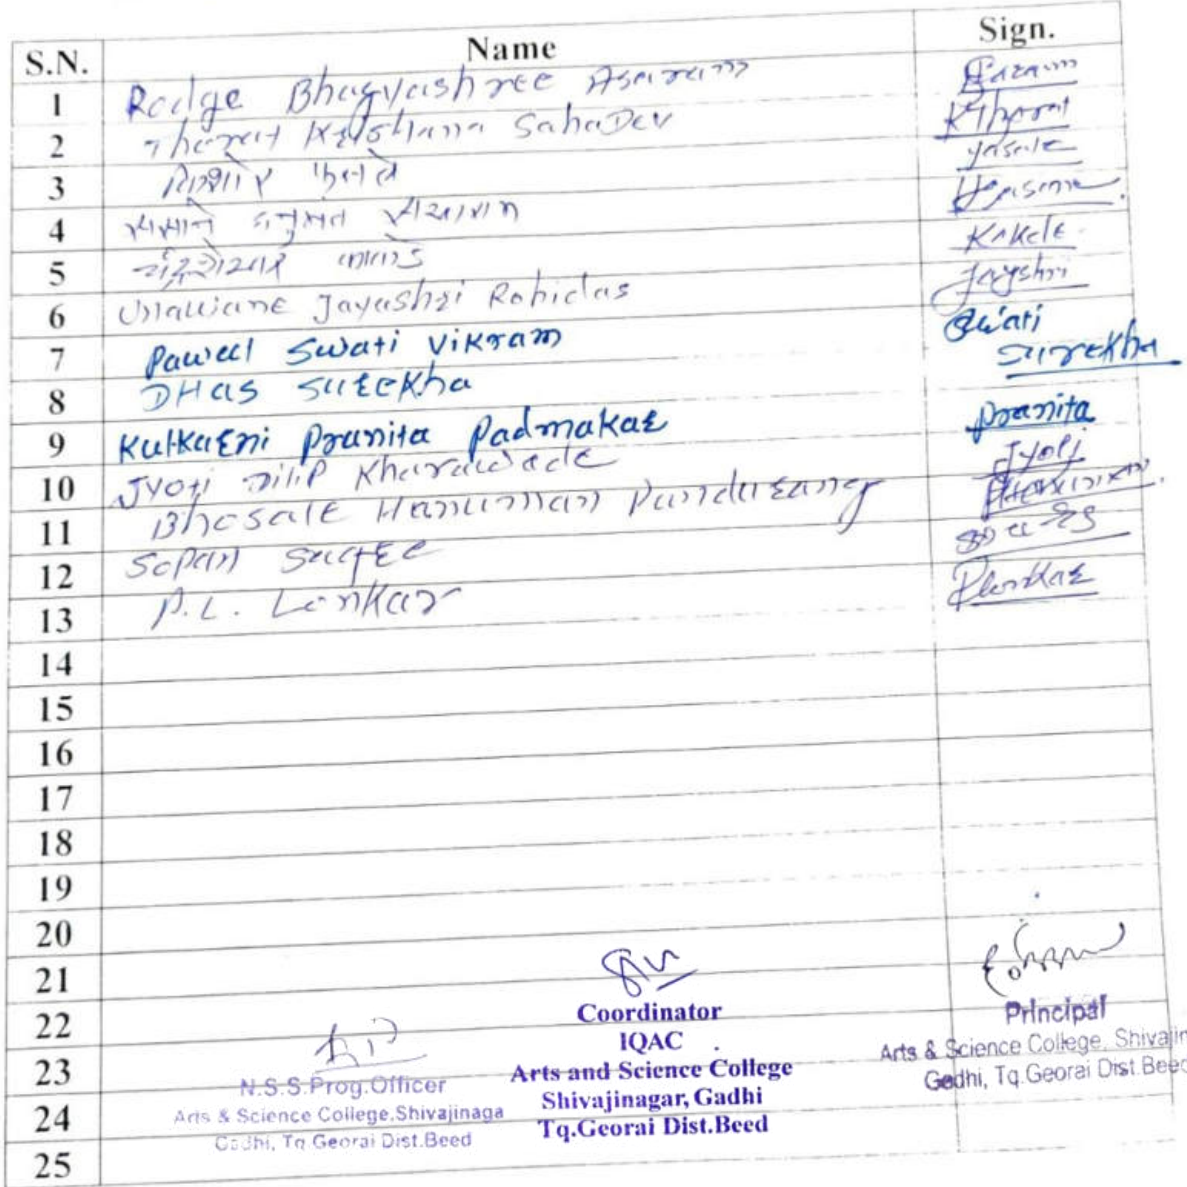 S.N. Name Sign.
1 Rodge Bhagyashree Asaram
2 Tharat Krishana SahaDev KTharat
3 किशोर
4 हनुमंत
5 चंद्रशेखर काकडे Kakde
6 Unawane Jayashri Rohidas Jayshri
7 Pawar Swati Vikram Swati
8 DHas Surekha Surekha
9 Kulkarni Pranita Padmakar Pranita
10 Jyoti Dilip Kharawade Jyoti
11 Bhosale Hanuman Pandurang
12 Sopan
13 P.L. Lonkar Plonkar
14
15
16
17
18
19
20
21
22
23
24
25
N.S.S.Prog.Officer
Arts & Science College,Shivajinaga
Gadhi, Tq Georai Dist.Beed
Coordinator
IQAC
Arts and Science College
Shivajinagar, Gadhi
Tq.Georai Dist.Beed
Principal
Arts & Science College, Shivajin
Gadhi, Tq.Georai Dist.Beed